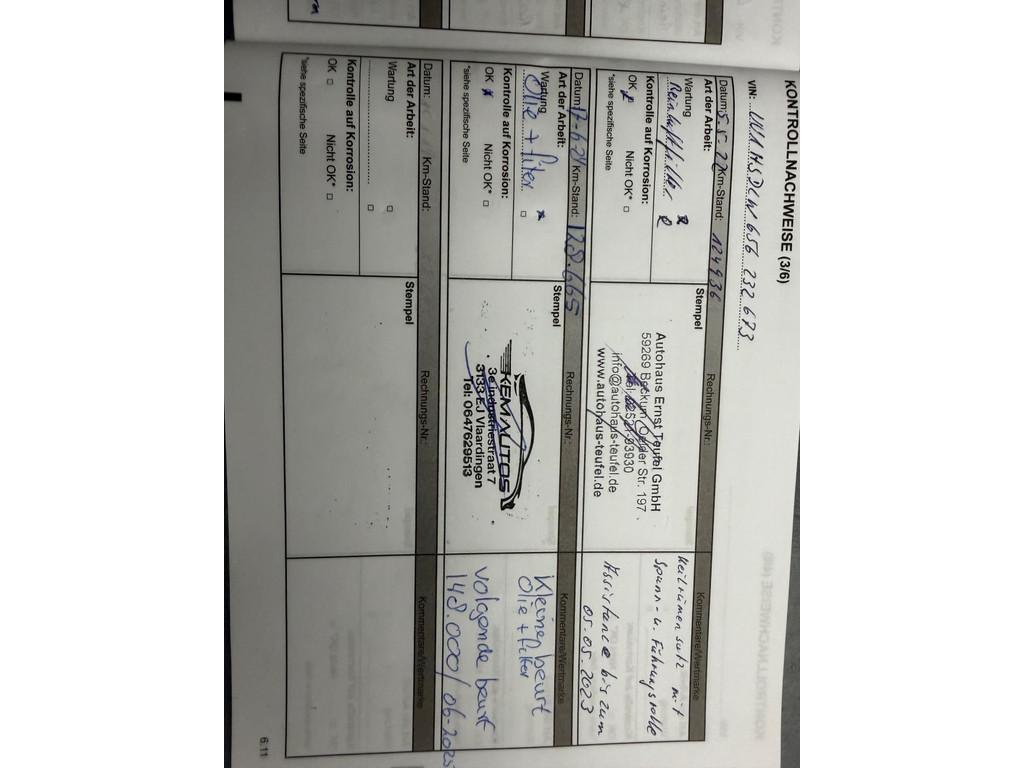 KONTROLLNACHWEISE (3/6)
VIN:
656 232 673
Datum: 5.5.22 Km-Stand: 124936 Rechnungs-Nr.: Kommentare/Wertmarke
Art der Arbeit:
Wartung
Kontrolle auf Korrosion:
OK Nicht OK*
*siehe spezifische Seite
Stempel
Autohaus Ernst Teufel GmbH
59269 Beckum Oelder Str. 197
93930
info@autohaus-teufel.de
www.autohaus-teufel.de
Keilriemensatz mit
Spann- u. Führungsrolle
Assistance bis zum
05.05.2023
Datum: 17-6-24 Km-Stand: 128.665 Rechnungs-Nr.: Kommentare/Wertmarke
Art der Arbeit:
Wartung
Olie + filter
Kontrolle auf Korrosion:
OK Nicht OK*
*siehe spezifische Seite
Stempel
KEMAUTOS
3e industriestraat 7
3133 EJ Vlaardingen
Tel: 0647629513
Kleine beurt
Olie + filter
volgende beurt
148.000/06-2025
Datum: Km-Stand: Rechnungs-Nr.: Kommentare/Wertmarke
Art der Arbeit:
Wartung
Kontrolle auf Korrosion:
OK Nicht OK*
*siehe spezifische Seite
Stempel
6.11